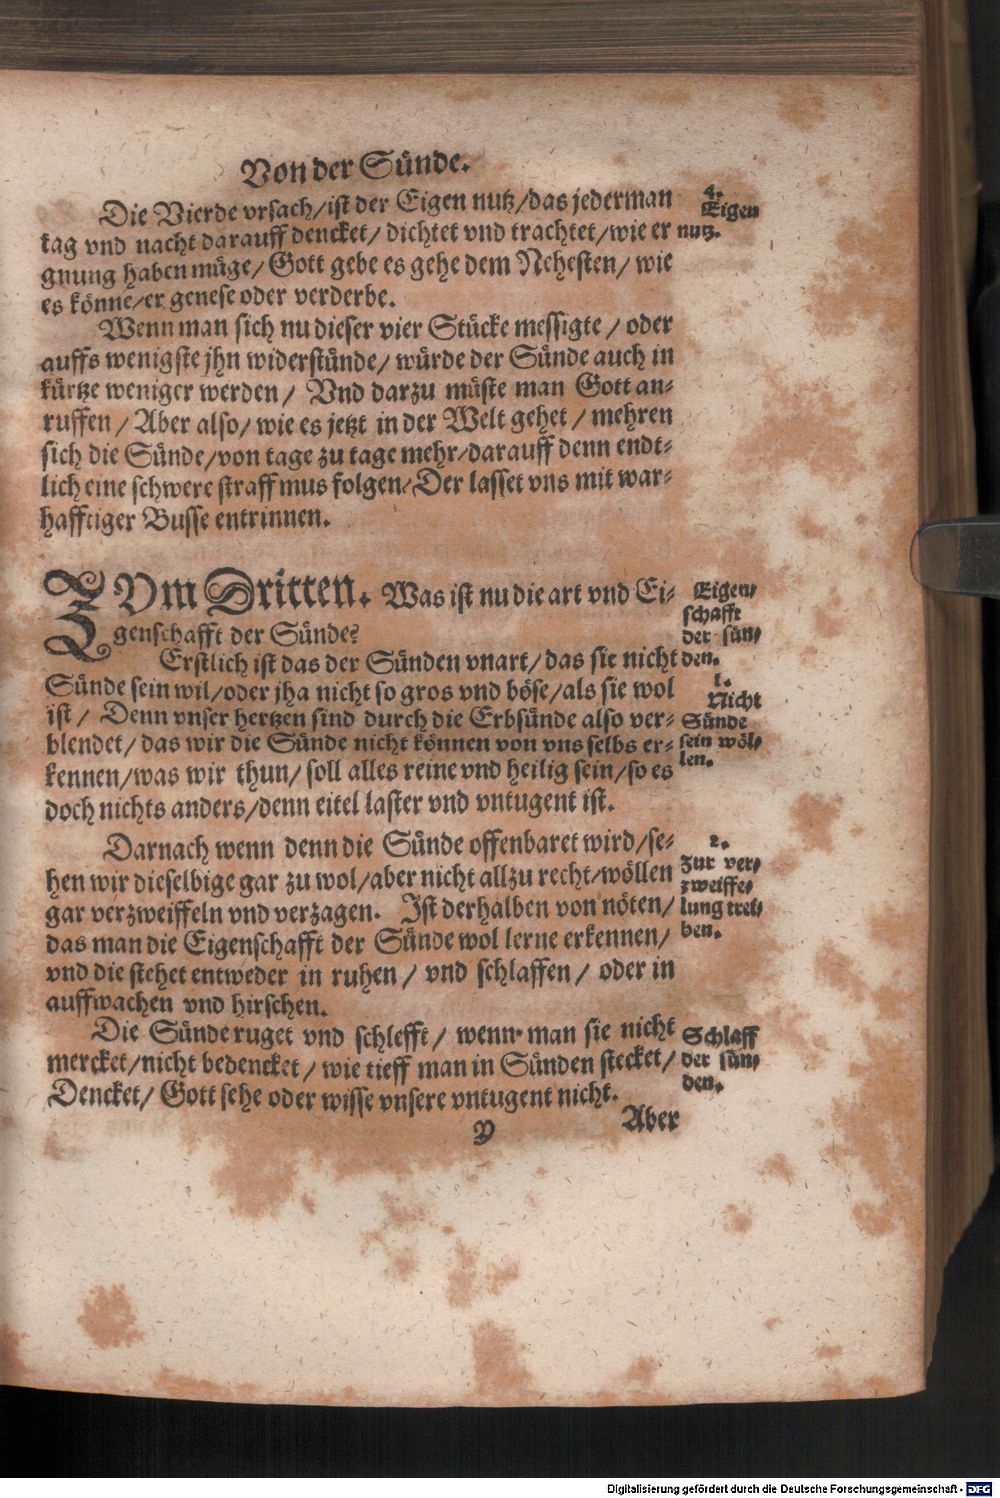 Von der Sünde.
Die Vierde vrsach/ist der Eigen nutz/das jederman
tag vnd nacht darauff dencket/ dichtet vnd trachtet/wie er
gnung haben müge/ Gott gebe es gehe dem Nehesten/ wie
es könne/er genese oder verderbe.
4.
Eigen
nutz.
Wenn man sich nu dieser vier Stücke messigte / oder
auffs wenigste jhn widerstünde/ würde der Sünde auch in
kürtze weniger werden / Vnd darzu müste man Gott an-
ruffen / Aber also/ wie es jetzt in der Welt gehet / mehren
sich die Sünde/von tage zu tage mehr/darauff denn endt-
lich eine schwere straff mus folgen/Der lasset vns mit war-
hafftiger Busse entrinnen.
ZVm Dritten. Was ist nu die art vnd Ei-
genschafft der Sünde?
Eigen/
schafft
der sün/
den.
Erstlich ist das der Sünden vnart/ das sie nicht
Sünde sein wil/oder jha nicht so gros vnd böse/als sie wol
ist / Denn vnser hertzen sind durch die Erbsünde also ver-
blendet/ das wir die Sünde nicht können von vns selbs er-
kennen/was wir thun/ soll alles reine vnd heilig sein/so es
doch nichts anders/denn eitel laster vnd vntugent ist.
1.
Nicht
Sünde
sein wöl/
len.
Darnach wenn denn die Sünde offenbaret wird/se-
hen wir dieselbige gar zu wol/aber nicht allzu recht/wöllen
gar verzweiffeln vnd verzagen. Ist derhalben von nöten/
das man die Eigenschafft der Sünde wol lerne erkennen/
vnd die stehet entweder in ruhen / vnd schlaffen / oder in
auffwachen vnd hirschen.
2.
Zur ver/
zweiffe/
lung trei/
ben.
Die Sünde ruget vnd schlefft / wenn man sie nicht
mercket/nicht bedencket / wie tieff man in Sünden stecket/
Dencket/ Gott sehe oder wisse vnsere vntugent nicht.
Schlaff
der sün/
den.
Y
Aber
Digitalisierung gefördert durch die Deutsche Forschungsgemeinschaft - DFG